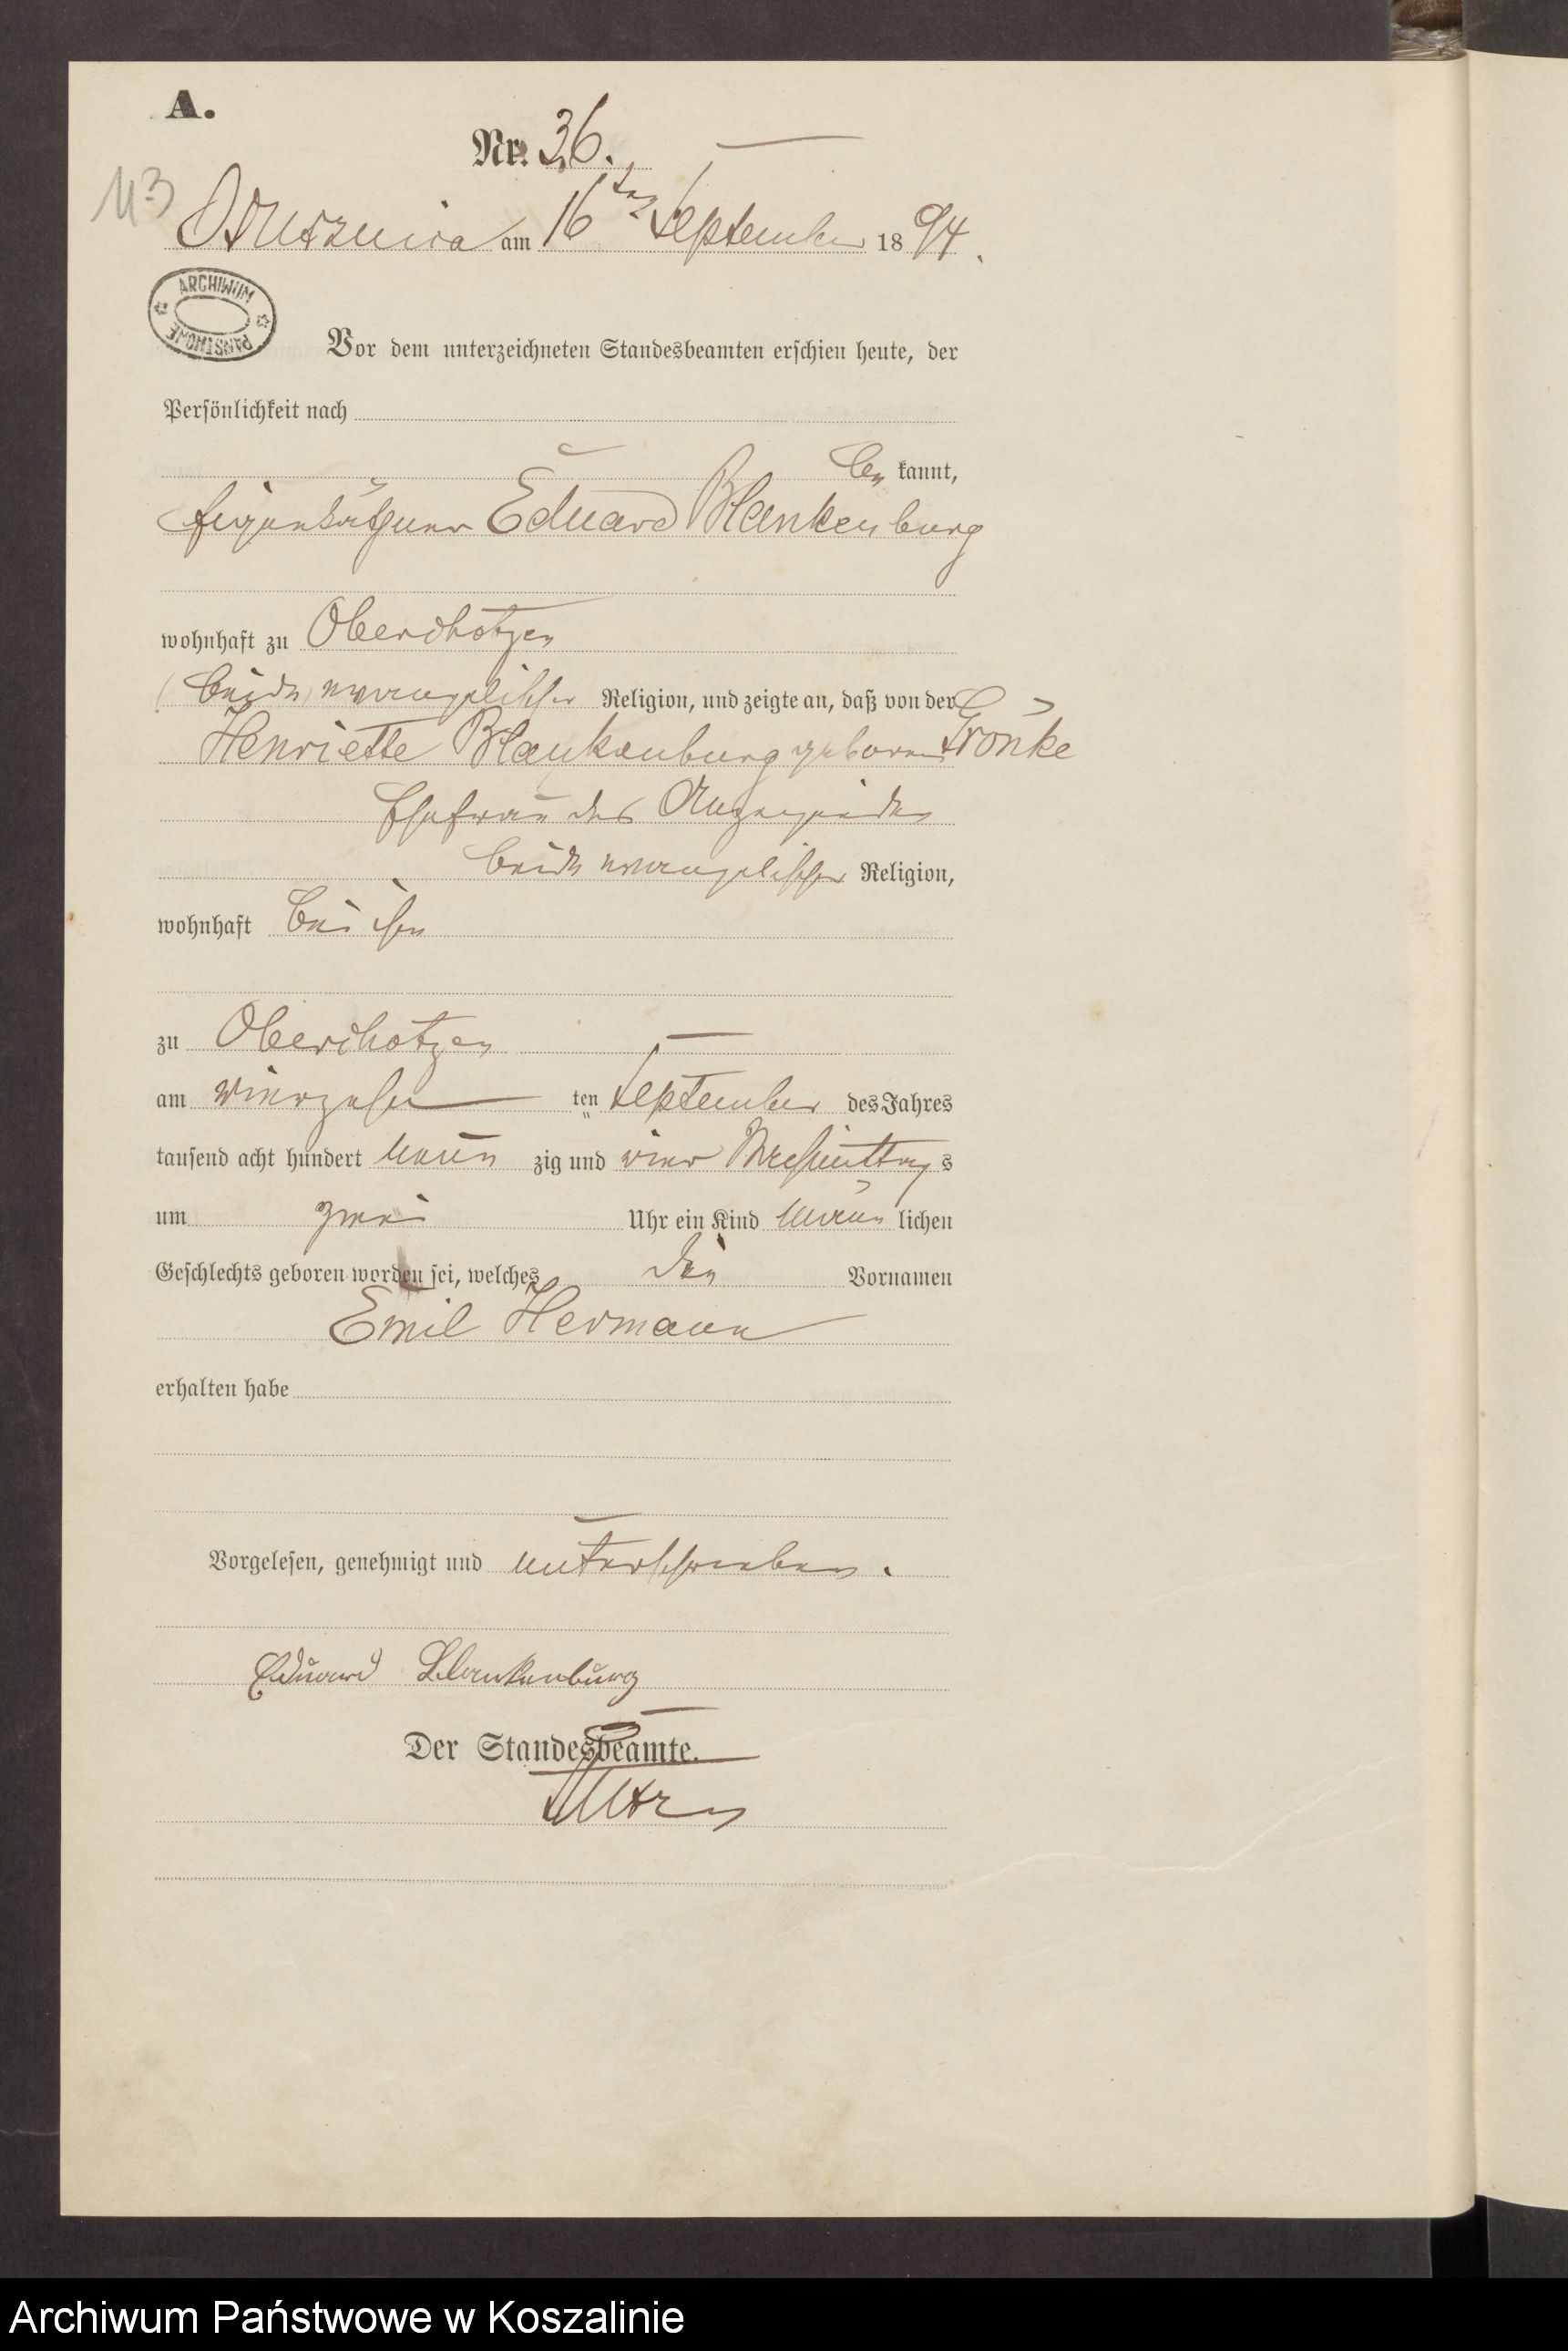 A.
Nr. 36.
113
am 16ten September 1894.
ARCHIWUM PAŃSTWOWE
Vor dem unterzeichneten Standesbeamten erschien heute, der
Persönlichkeit nach
be kannt,
Eduard Blankenburg
wohnhaft zu Oberchotzen
(beide) evangelischer Religion, und zeigte an, daß von der
Henriette Blankenburg geborene Grönke
Ehefrau des Anzeigenden
beide evangelischer Religion,
wohnhaft bei ihm
zu Oberchotzen
am vierzehn ten September des Jahres
tausend acht hundert neun zig und vier Nachmittag s
um zwei Uhr ein Kind männ lichen
Geschlechts geboren worden sei, welches die Vornamen
Emil Hermann
erhalten habe
Vorgelesen, genehmigt und unterschrieben.
Eduard Blankenburg
Der Standesbeamte.